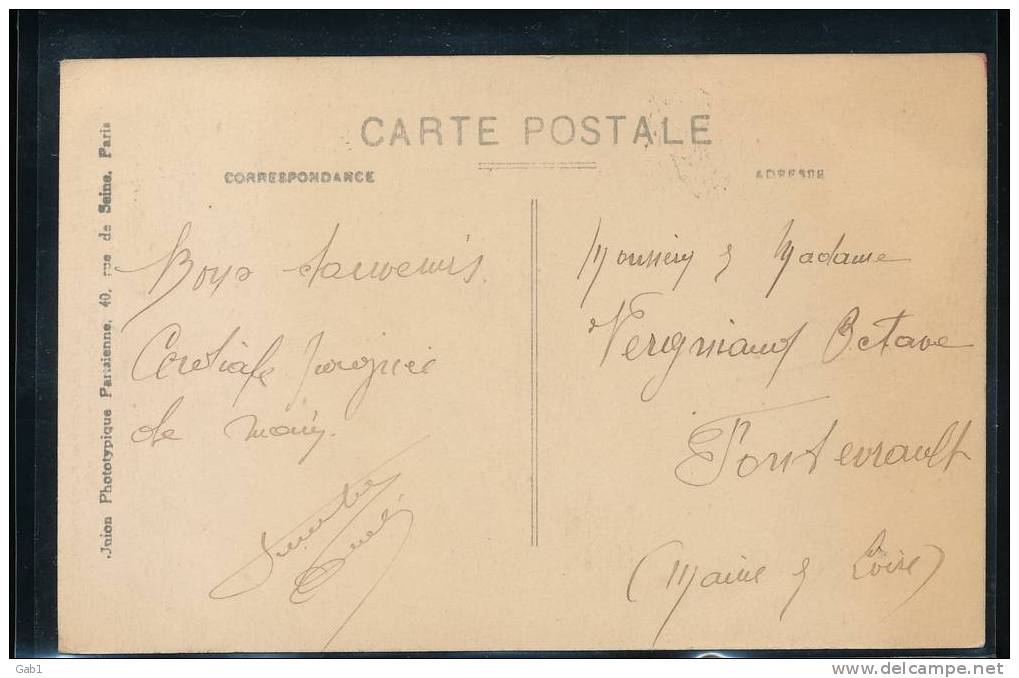 CARTE POSTALE
CORRESPONDANCE
ADRESSE
Union Phototypique Parisienne, 40, rue de Seine, Paris
Bons souvenirs.
Cordiale poignée
de main.
Monsieur & Madame
Vergniaud Octave
Fontevrault
(Maine & Loire)
Gab1
www.delcampe.net